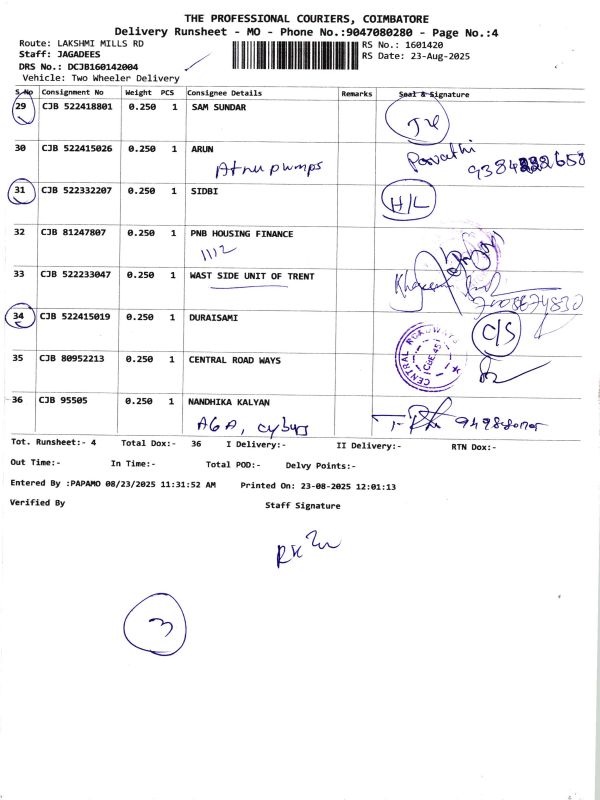 THE PROFESSIONAL COURIERS, COIMBATORE
Delivery Runsheet - MO - Phone No.:9047080280 - Page No.:4
Route: LAKSHMI MILLS RD
Staff: JAGADEES
DRS No.: DCJB160142004
Vehicle: Two Wheeler Delivery
RS No.: 1601420
RS Date: 23-Aug-2025
S No Consignment No Weight PCS Consignee Details Remarks Seal & Signature
29 CJB 522418801 0.250 1 SAM SUNDAR
30 CJB 522415026 0.250 1 ARUN
Parvathi
pumps
31 CJB 522332207 0.250 1 SIDBI
H/L
32 CJB 81247807 0.250 1 PNB HOUSING FINANCE
1112
33 CJB 522233047 0.250 1 WAST SIDE UNIT OF TRENT
34 CJB 522415019 0.250 1 DURAISAMI
C/S
35 CJB 80952213 0.250 1 CENTRAL ROAD WAYS
CENTRAL ROADWAYS
CBE-45
36 CJB 95505 0.250 1 NANDHIKA KALYAN
Tot. Runsheet:- 4 Total Dox:- 36 I Delivery:- II Delivery:- RTN Dox:-
Out Time:- In Time:- Total POD:- Delvy Points:-
Entered By :PAPAMO 08/23/2025 11:31:52 AM Printed On: 23-08-2025 12:01:13
Verified By Staff Signature
3